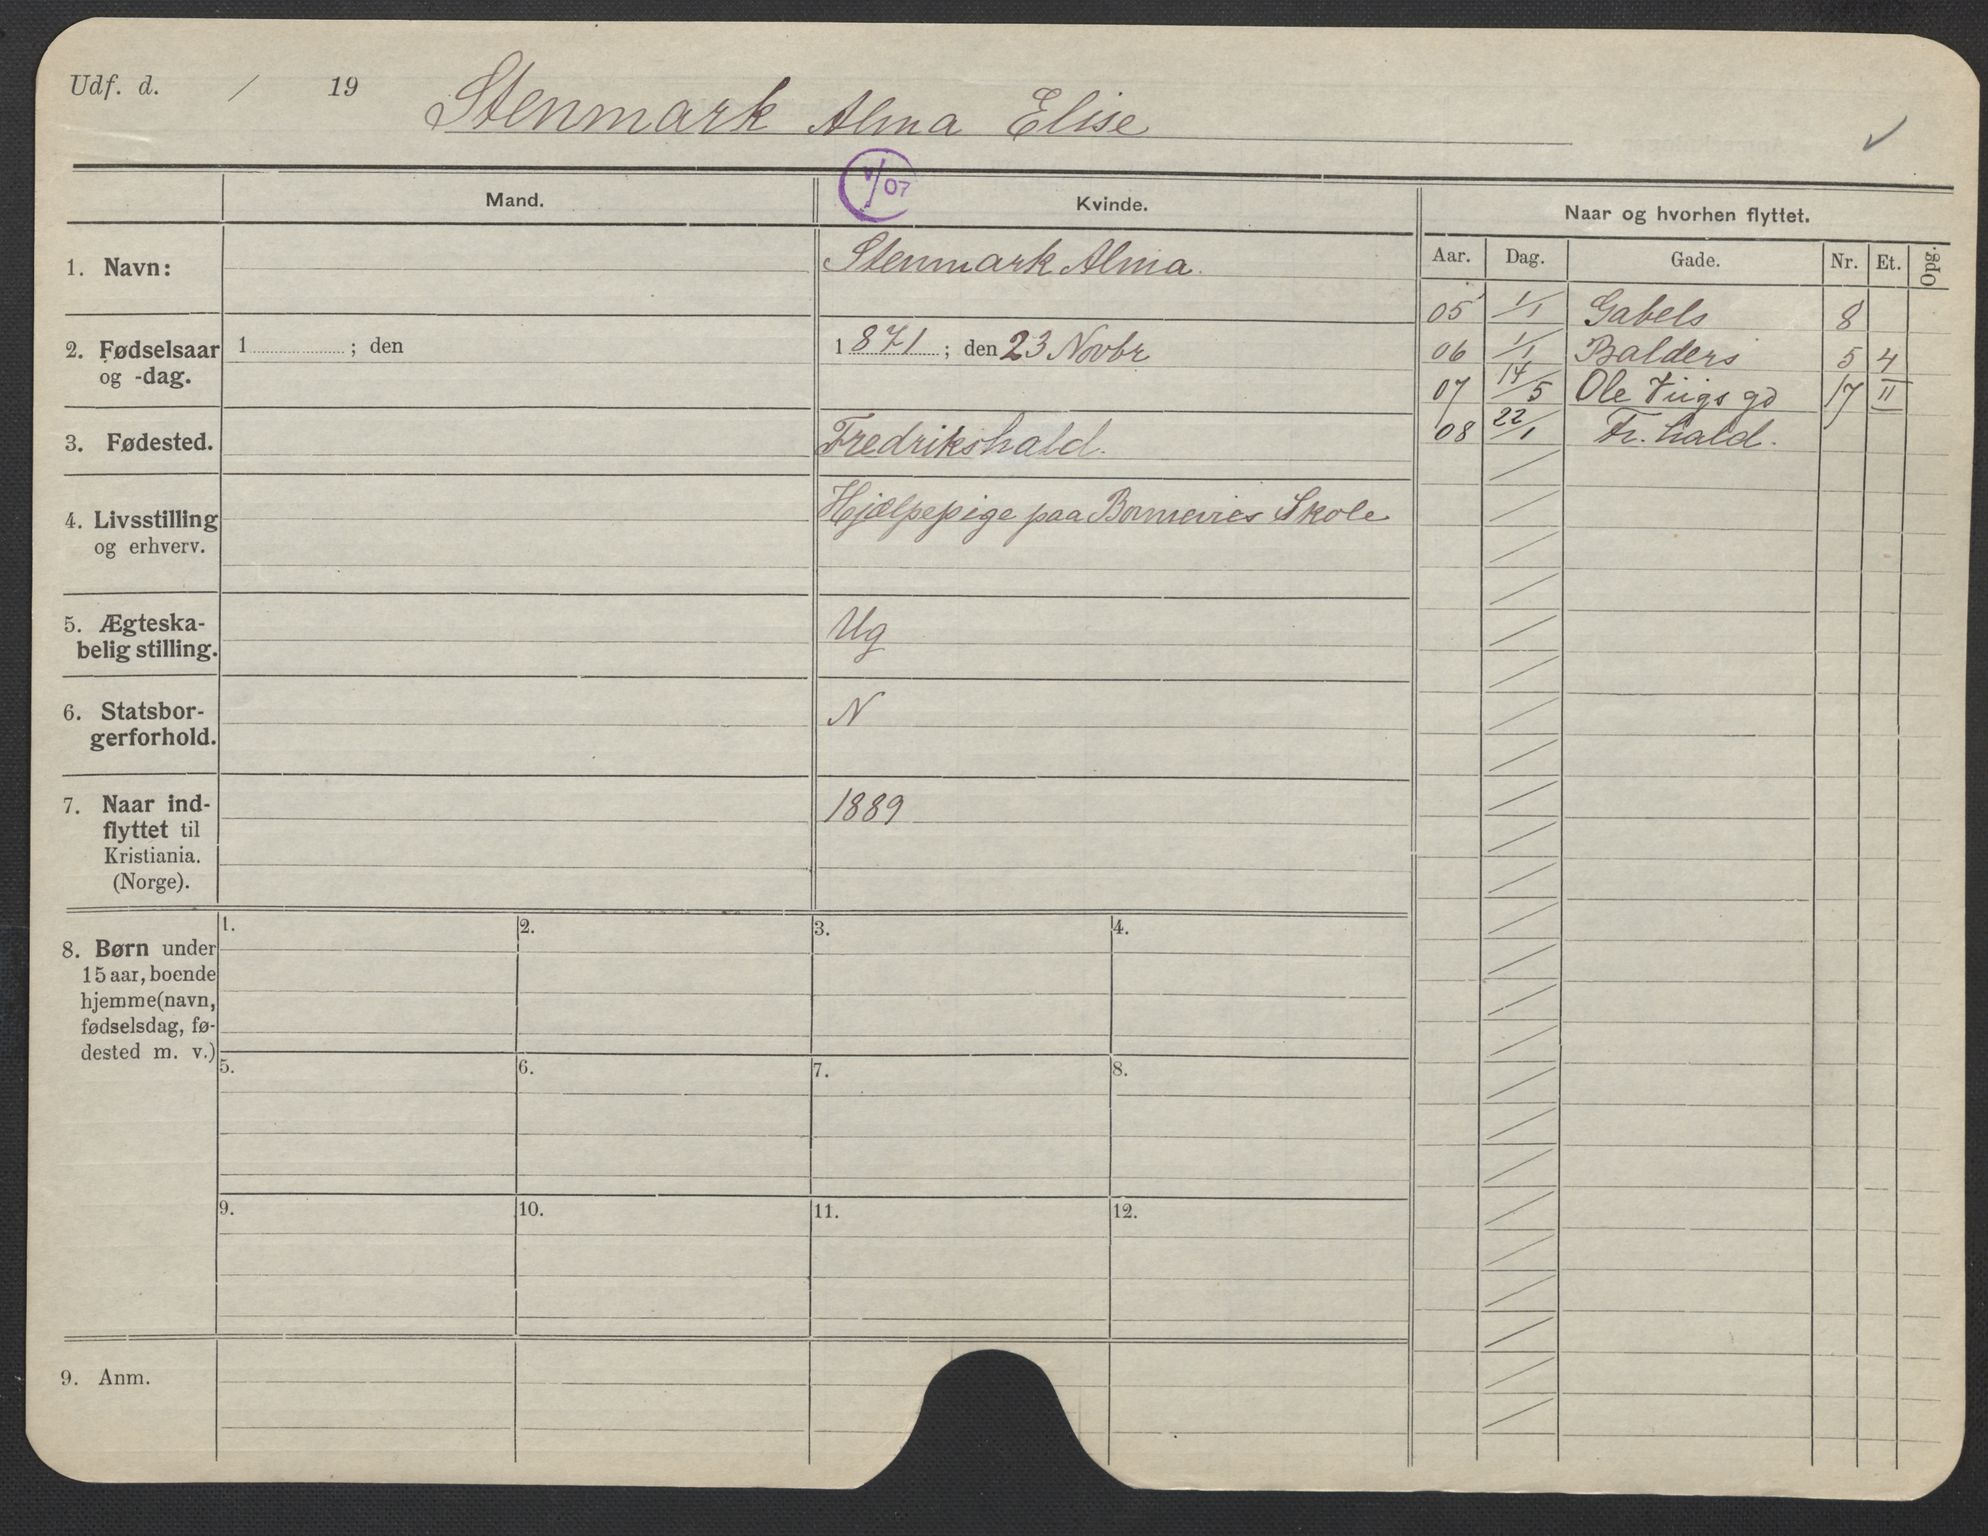 Udf. d. / 19 Stenmark Alma Elise
Mand.
V/07
Kvinde.
Naar og hvorhen flyttet.
Aar. Dag. Gade. Nr. Et. Opg.
1. Navn:
Stenmark Alma.
05 1/1 Gabels 8
06 1/1 Balders 5 4
07 14/5 Ole Viigs gd 17 II
08 22/1 Fr. hald.
2. Fødselsaar
og -dag.
1 ; den
1 871 ; den 23 Novbr
3. Fødested.
Fredrikshald.
4. Livsstilling
og erhverv.
Hjælpepige paa Skole
5. Ægteska-
belig stilling.
Ug
6. Statsbor-
gerforhold.
N
7. Naar ind-
flyttet til
Kristiania.
(Norge).
1889
8. Børn under
15 aar, boende
hjemme (navn,
fødselsdag, fø-
dested m. v.)
1. 2. 3. 4.
5. 6. 7. 8.
9. 10. 11. 12.
9. Anm.